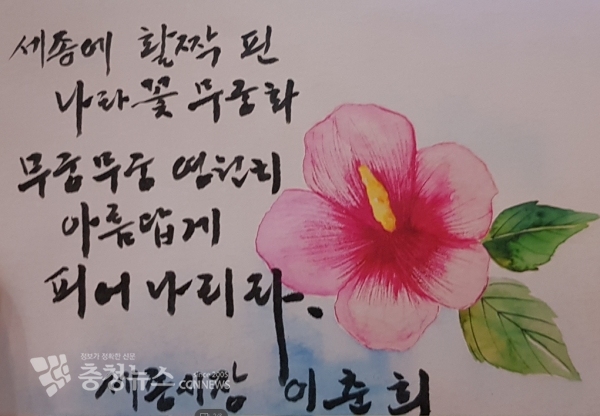 세종에 활짝 핀
나라꽃 무궁화
무궁무궁 영원히
아름답게
피어나리라.
세종시장 이춘희
정보가 정확한 신문
충청뉴스
since 2005
CCNNEWS